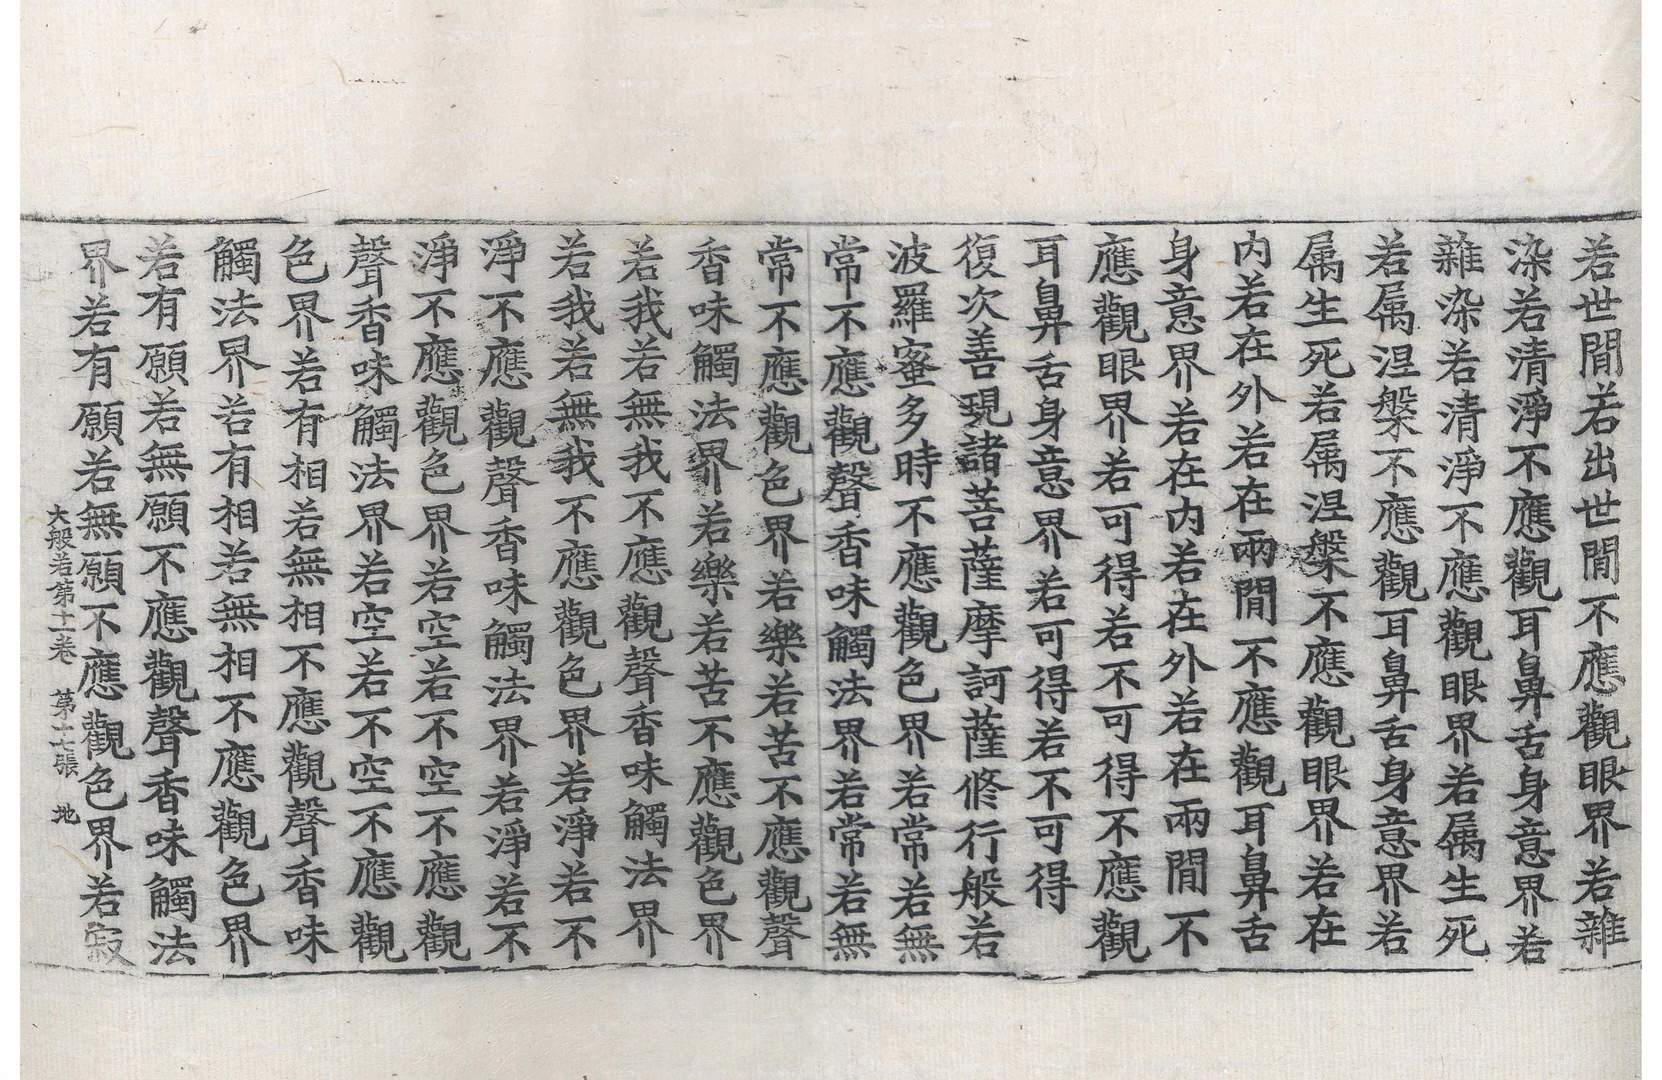 若世間若出世間不應觀眼界若雜
染若清淨不應觀耳鼻舌身意界若
雜染若清淨不應觀眼界若属生死
若属涅槃不應觀耳鼻舌身意界若
属生死若属涅槃不應觀眼界若在
内若在外若在兩間不應觀耳鼻舌
身意界若在内若在外若在兩間不
應觀眼界若可得若不可得不應觀
耳鼻舌身意界若可得若不可得
復次善現諸菩薩摩訶薩修行般若
波羅蜜多時不應觀色界若常若無
常不應觀聲香味觸法界若常若無
常不應觀色界若樂若苦不應觀聲
香味觸法界若樂若苦不應觀色界
若我若無我不應觀聲香味觸法界
若我若無我不應觀色界若淨若不
淨不應觀聲香味觸法界若淨若不
淨不應觀色界若空若不空不應觀
聲香味觸法界若空若不空不應觀
色界若有相若無相不應觀聲香味
觸法界若有相若無相不應觀色界
若有願若無願不應觀聲香味觸法
界若有願若無願不應觀色界若寂
大般若第十一卷 第十七張 地